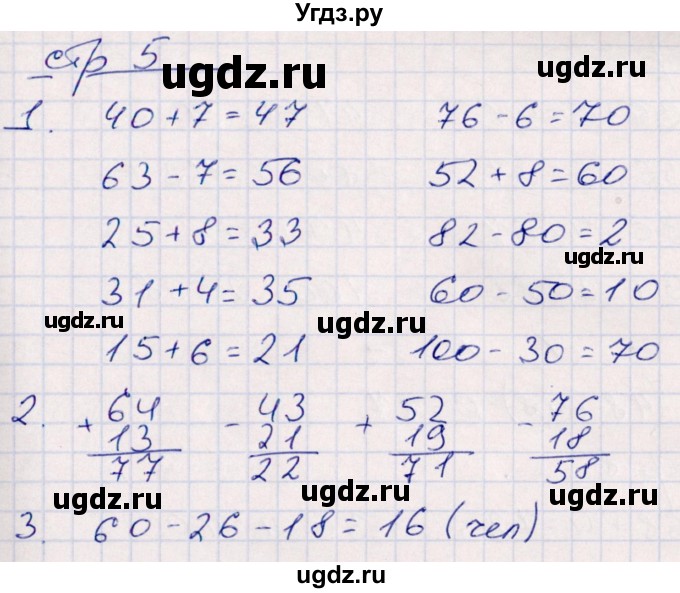 Угдз.ру
стр 5
ugdz.ru
1. 40 + 7 = 47 76 - 6 = 70
63 - 7 = 56 52 + 8 = 60
25 + 8 = 33 82 - 80 = 2
ugdz.ru
31 + 4 = 35 60 - 50 = 10
ugdz.ru ugdz.ru
15 + 6 = 21 100 - 30 = 70
2. + 64 - 43 + 52 - 76
13 21 19 18
77 22 71 58
ugdz.ru ugdz.ru
3. 60 - 26 - 18 = 16 (чел)
ugdz.ru